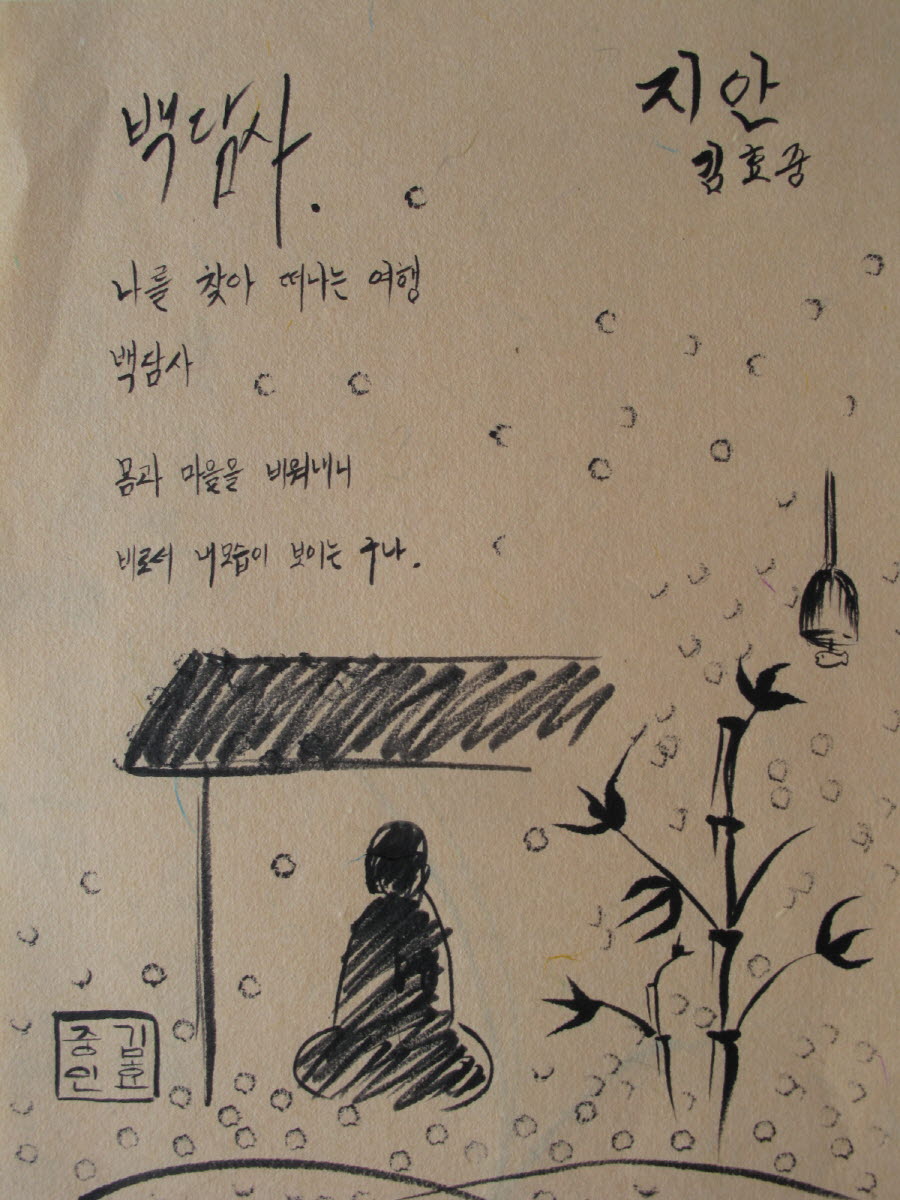 백담사.
지안
김효중
나를 찾아 떠나는 여행
백담사
몸과 마음을 비워내니
비로서 내모습이 보이는 구나.
김효
중인